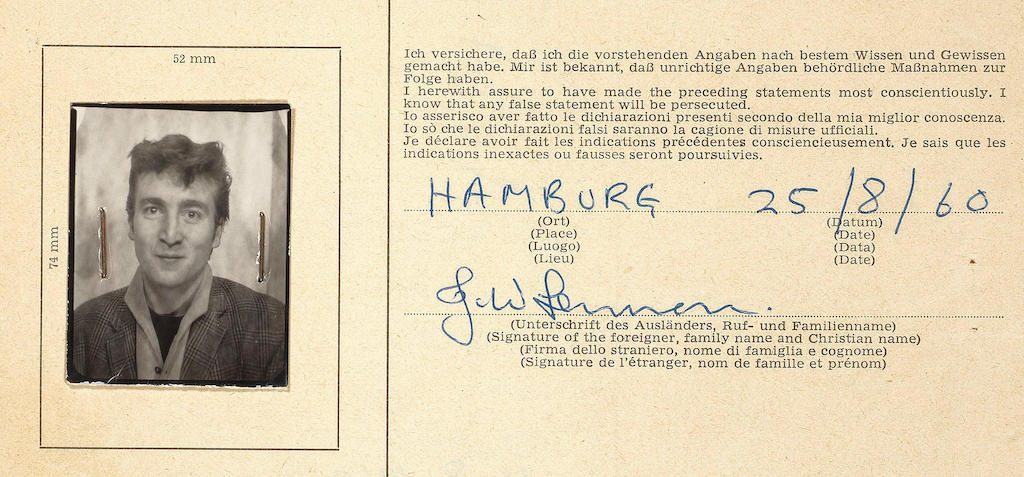 52 mm
74 mm
Ich versichere, daß ich die vorstehenden Angaben nach bestem Wissen und Gewissen
gemacht habe. Mir ist bekannt, daß unrichtige Angaben behördliche Maßnahmen zur
Folge haben.
I herewith assure to have made the preceding statements most conscientiously. I
know that any false statement will be persecuted.
Io asserisco aver fatto le dichiarazioni presenti secondo della mia miglior conoscenza.
Io sò che le dichiarazioni falsi saranno la cagione di misure ufficiali.
Je déclare avoir fait les indications précédentes consciencieusement. Je sais que les
indications inexactes ou fausses seront poursuivies.
HAMBURG 25/8/60
(Ort) (Datum)
(Place) (Date)
(Luogo) (Data)
(Lieu) (Date)
J. W Lennon.
(Unterschrift des Ausländers, Ruf- und Familienname)
(Signature of the foreigner, family name and Christian name)
(Firma dello straniero, nome di famiglia e cognome)
(Signature de l'étranger, nom de famille et prénom)